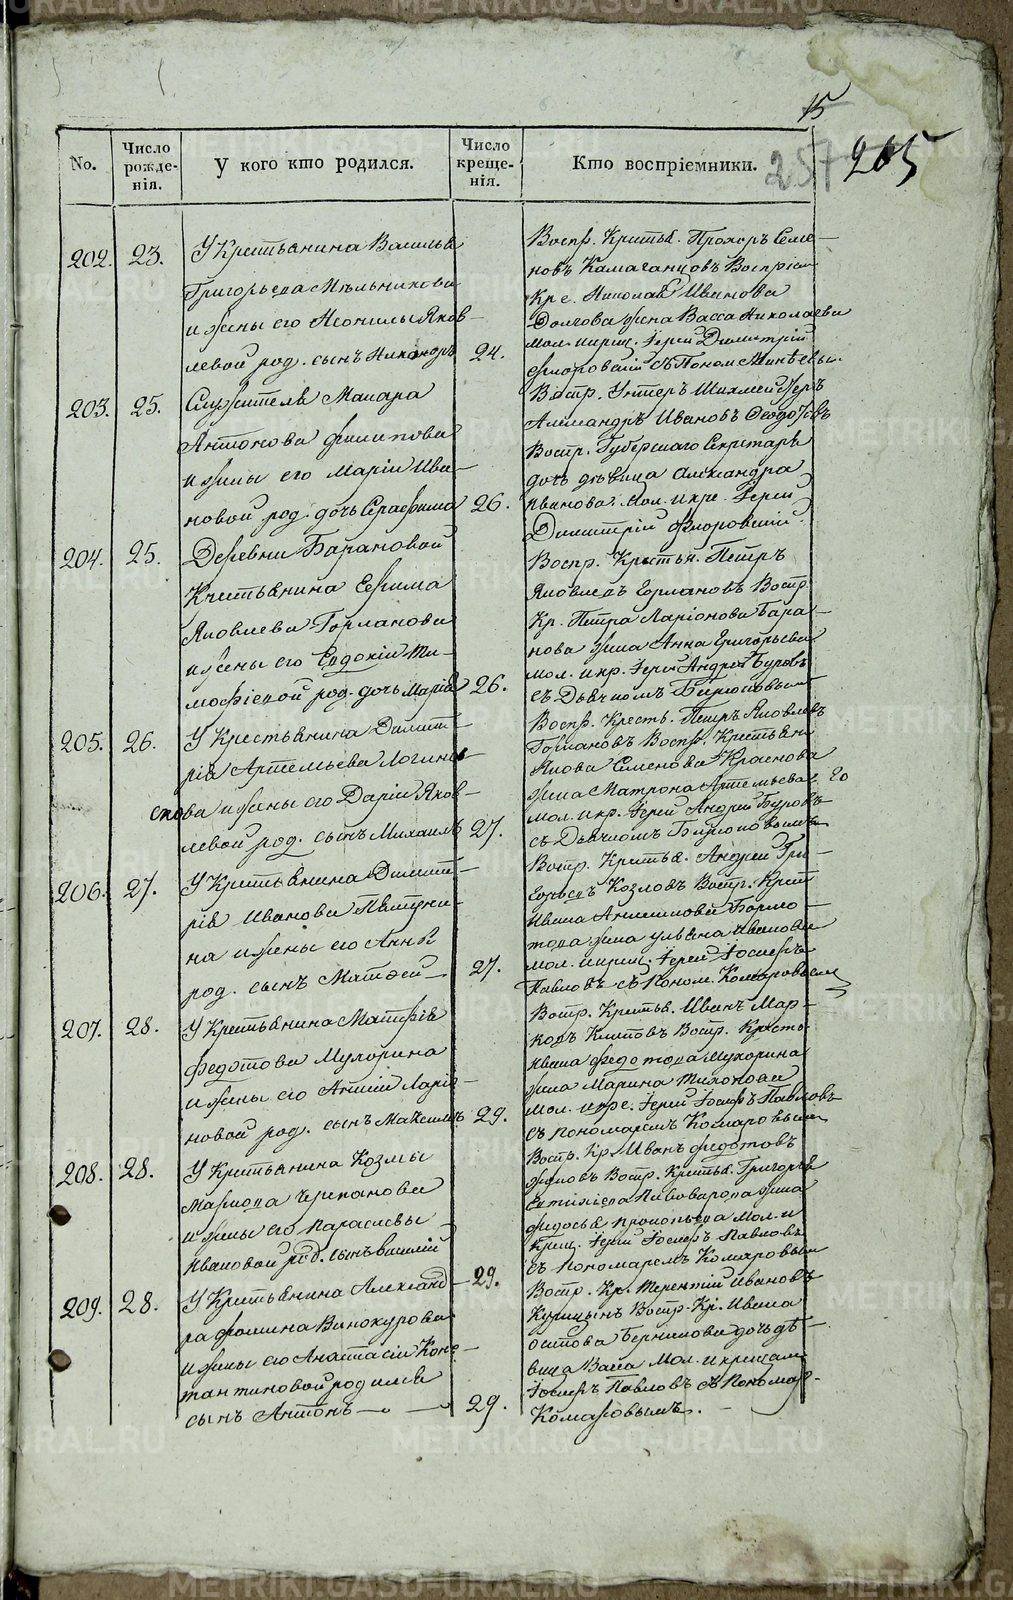 15
257 265
No. Число рожде-нія. У кого кто родился. Число креще-нія. Кто воспріемники.
202. 23. У Крестьянина Василья
Григорьева Мельникова
и жены его Неонилы Яков-
левой род. сынъ Никандръ 24.
Воспр. Крестья. Прохоръ Семе-
новъ Воспріем
Кре. Николая Иванова
Долгова жена Васса Николаева
мол. и крещ. Іерей Димитрій
Флоровскій съ Поном.
203. 25. Служителя Макара
Антонова Филипова
и жены его Маріи Ива-
новой род. дочь Серафима 26.
Воспр. Унтеръ Шихмейстеръ
Александръ Ивановъ
Воспр. Губерскаго Секретаря
дочь девица Александра
Иванова. Мол. и кре. Іерей
Димитрій Флоровскій.
204. 25. Деревни Барановой
Крестьянина Ефима
Яковлева Горланова
и жены его Евдокіи Ти-
мофіевой род. дочь Марія 26.
Воспр. Крестьн. Петръ
Яковлевъ Горлановъ Воспр
Кр. Петра Ларіонова Бара-
нова жена Анна Григорьева
мол. и кр. Іерей Андрей Буровъ
съ Дьячкомъ Бирюковымъ
205. 26. У Крестьянина Димит-
рія Артемьева Логино-
скова и жены его Даріи Яков-
левой род. сынъ Михаилъ 27.
Воспр. Кресть. Петръ Яковлевъ
Горлановъ Воспр. Крестьян
Якова Семенова Краснова
жена Матрона Артемьева
мол. и кр. Іерей Андрей Буровъ
съ Дьячкомъ Бирюковымъ
206. 27. У Крестьянина Димит-
рія Иванова Петуни-
на и жены его Анны
род. сынъ Матвей 27.
Воспр. Крестья. Андрей Гри-
горьевъ Козловъ Воспр. Крест
Ивана
жена Ульяна Иванова
мол. и крещ. Іерей Іосифъ
Павловъ съ Поном. Комаровымъ
207. 28. У Крестьянина Матфія
Федотова Мухорина
и жены его Ларіо-
новой род. сынъ Максимъ 29.
Воспр. Крестья. Иванъ Мар-
ковъ Воспр. Кресть-
янина Федотова Мухорина
жена Марина Тихонова
мол. и кре. Іерей Іосифъ Павловъ
съ пономаремъ Комаровымъ
208. 28. У Крестьянина Козмы
Маркова Черепанова
и жены его Парасковьи
Ивановой род. сынъ Василій 29.
Воспр. Кр. Иванъ Федотовъ
Воспр. Крестья. Григорья
Пивоварова жена
Федосья Прокопьева мол. и
крещ. Іерей Іосифъ Павловъ
съ Пономаремъ Комаровымъ
209. 28. У Крестьянина Александ-
ра Фомина Винокурова
и жены его Анастасіи Конс-
тантиновой родился
сынъ Антонъ 29.
Воспр. Кр. Терентій Ивановъ
Курицынъ Воспр. Кр. Ивана
дочь дѣ-
вица Васса Мол. и крещал
Іосифъ Павловъ съ Пономар.
Комаровымъ.